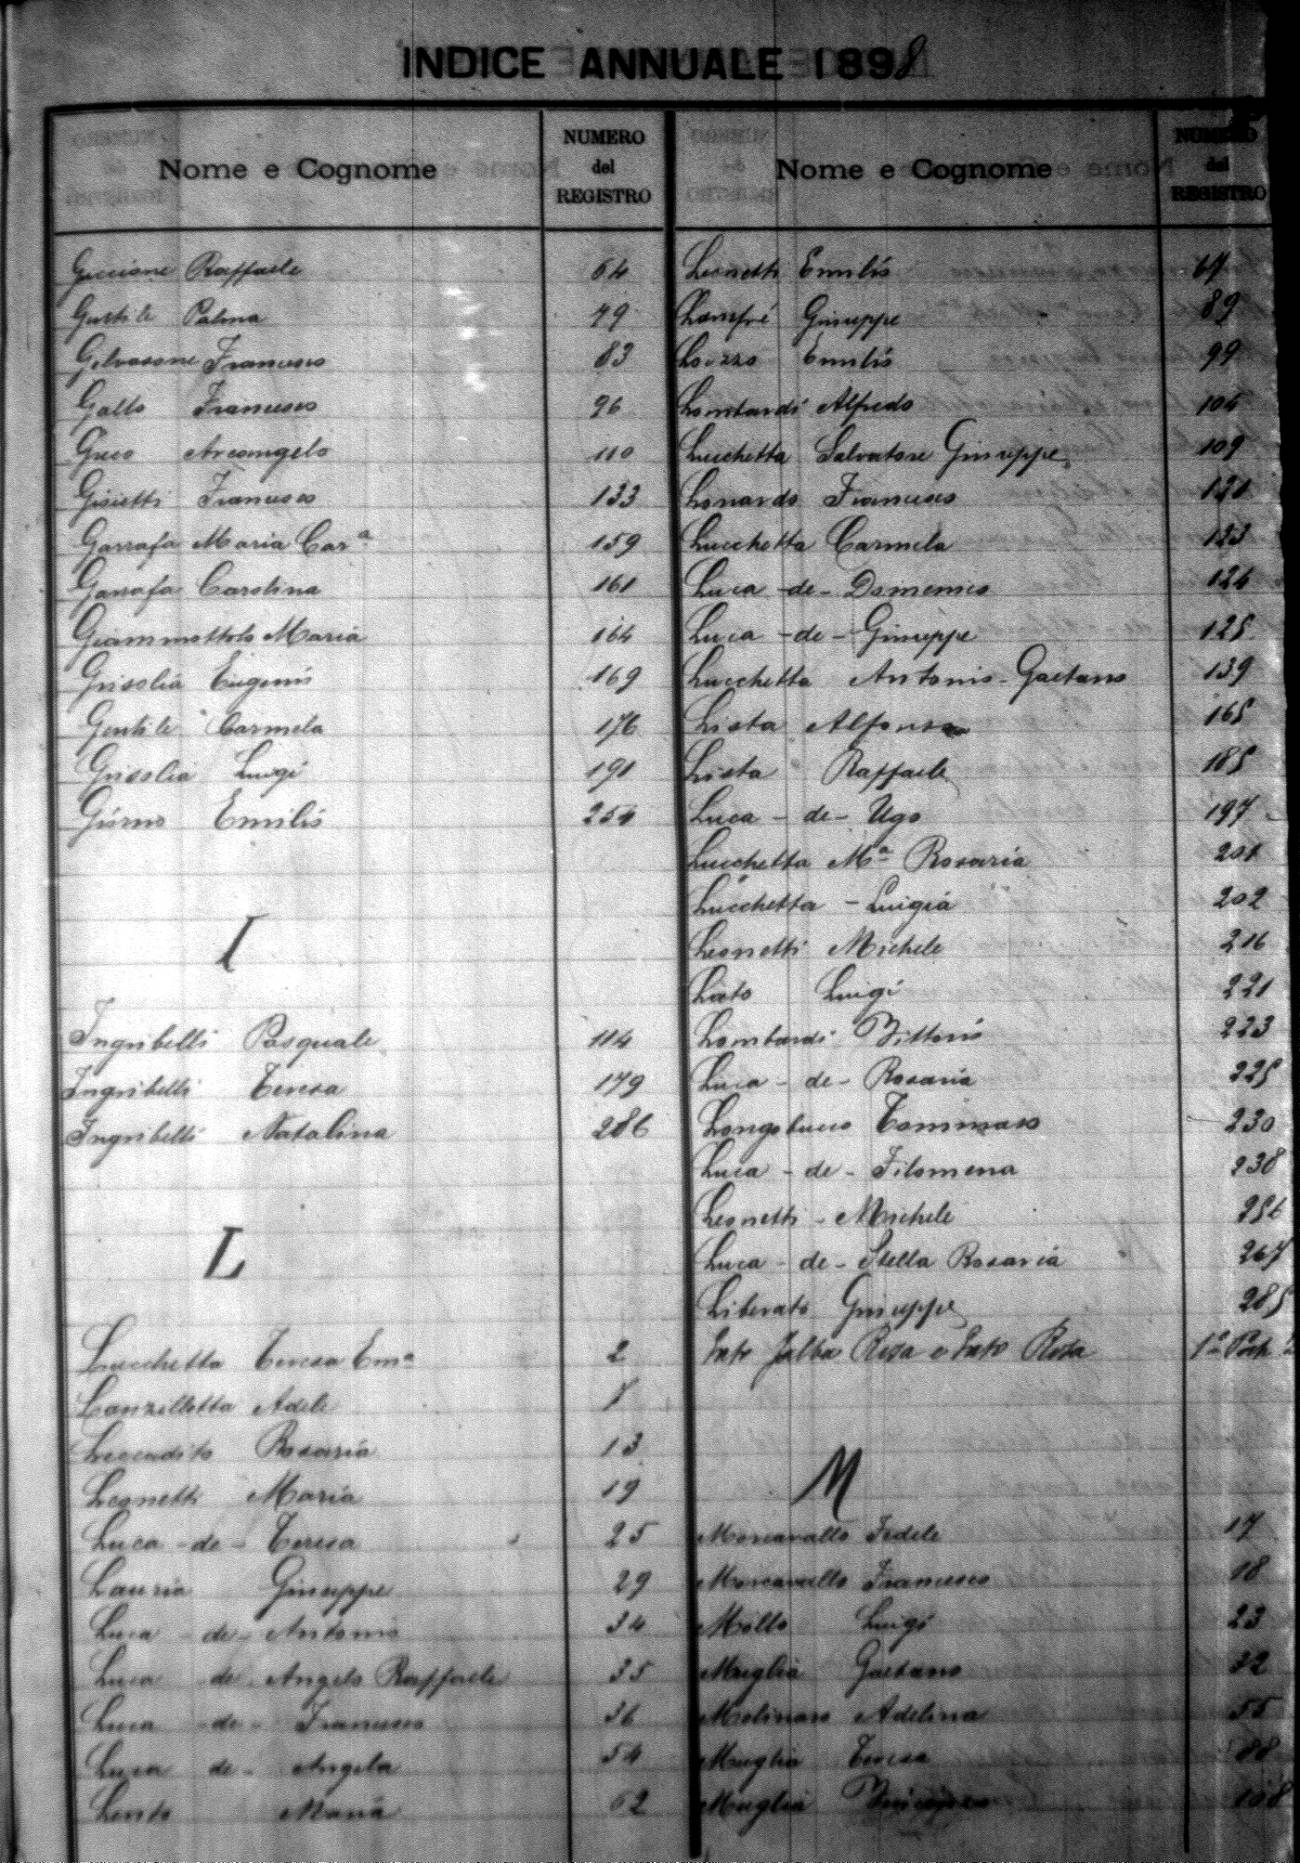 INDICE ANNUALE 1898
Nome e Cognome
NUMERO
del
REGISTRO
Guccione Raffaele 64
Gentile Palma 79
Gelvasone Francesco 83
Gallo Francesco 96
Greco Arcangelo 110
Francesco 133
Garrafa Maria Carª 159
Garrafa Carolina 161
Giammottolo Maria 164
Grisolia Eugenio 169
Gentile Carmela 176
Grisolia Luigi 191
Giorno Emilio 254
I
Ingribelli Pasquale 114
Ingribelli Teresa 179
Ingribelli Natalina 286
L
Lucchetta Teresa Emª 2
Lanzillotta Adele
Leccadito Rosaria 13
Leonetti Maria 19
Luca - de - Teresa 25
Lauria Giuseppe 29
Luca - de - Antonio 34
Luca de Angelo Raffaele 35
Luca - de - Francesco 36
Luca de - Angela 54
Lento Maria 62
Nome e Cognome
NUMERO
del
REGISTRO
Leonetti Emilio 67
Giuseppe 89
Emilio 99
Lombardi Alfredo
Lucchetta Salvatore Giuseppe 109
Lonardo Francesco 121
Lucchetta Carmela 123
Luca - de - Domenico 124
Luca - de - Giuseppe 125
Lucchetta Antonio - Gaetano 139
Lista Alfonso 165
Lista Raffaele 185
Luca - de - Ugo 197
Lucchetta Mª Rosaria 201
Lucchetta - Luigia 202
Leonetti Michele 216
Luigi 221
Lombardi Vittorio 223
Luca - de - Rosaria 225
Longobucco Tommaso 230
Luca - de - Filomena 238
Leonetti - Michele 256
Luca - de - Stella Rosaria 267
Liberato Giuseppe 285
Jalba Rosa e Rosa
M
Morcavallo Fedele 17
Morcavallo Francesco 18
Mollo Luigi 23
Muglia Gaetano 32
Molinaro Adelina 55
Muglia Teresa 88
Muglia 108